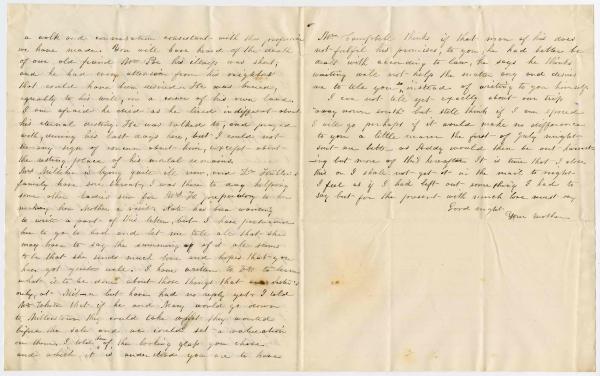 a walk and conversation consistent with the profession
we have made. You will have heard of the death
of our old friend Mr his illness was short,
and he had every attention from his neighbors
that could have been desired. He was buried,
agreeably to his will, in a corner of his own land.
I am afraid he died as he lived indifferent about
his eternal destiny. He was talked to, and prayed
with, during his last days here, but I could not
see any sign of concern about him, except about
the resting place of his mortal remains.
Mrs is lying quite ill now, and Dr
family have sore throat, I was there to day helping
some other ladies sew for Mrs H preparatory to her
making her Mother a visit. Kate has been wanting
to write a part of this letter, but I have persuaded
her to go to bed, and let me tell all that she
may have to say the summing up of it all seems
to be that she sends much love and hopes that you
have got quite well. I have written to to learn
what is to be done about those things that
only, at but have had no reply yet. I told
Mr White that if he and Mary would go down
to they could take what they wanted
before the sale and we could set a valuation
on them, I told them of the looking glass you chose
and which it is understood you are to have
Mr Campbell thinks if that man of his does
not fulfil his promises, to you, he had better be
dealt with according to law, he says he thinks
waiting will not help the matter any and desires
me to tell you instead of writing to you himself
I can not tell yet exactly about our trip
away down south but still think if I am spared
I will go perhaps if it would make no difference
to you a little nearer the first of July might
suit me better as Addy would then be out
ing but more of this hereafter It is time that I close
this or I shall not get it in the mail to night.
I feel as if I had left out something I had to
say but for the present with much love must say
Good night
Your mother